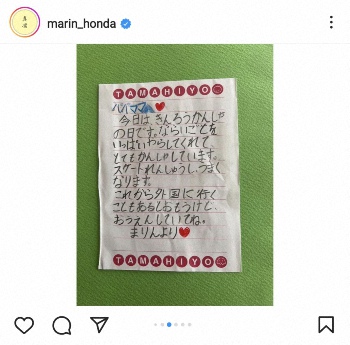 marin_honda
TAMAHIYO
パパ ママへ
今日は、きんろうかんしゃ
の日です。ならいごとを
いっぱいわらしてくれて
とてもかんしゃしています。
スケートれんしゅうし、うまく
なります。
これから外国に行く
こともあるとおもうけど、
おうえんしていてね。
まりんより
TAMAHIYO